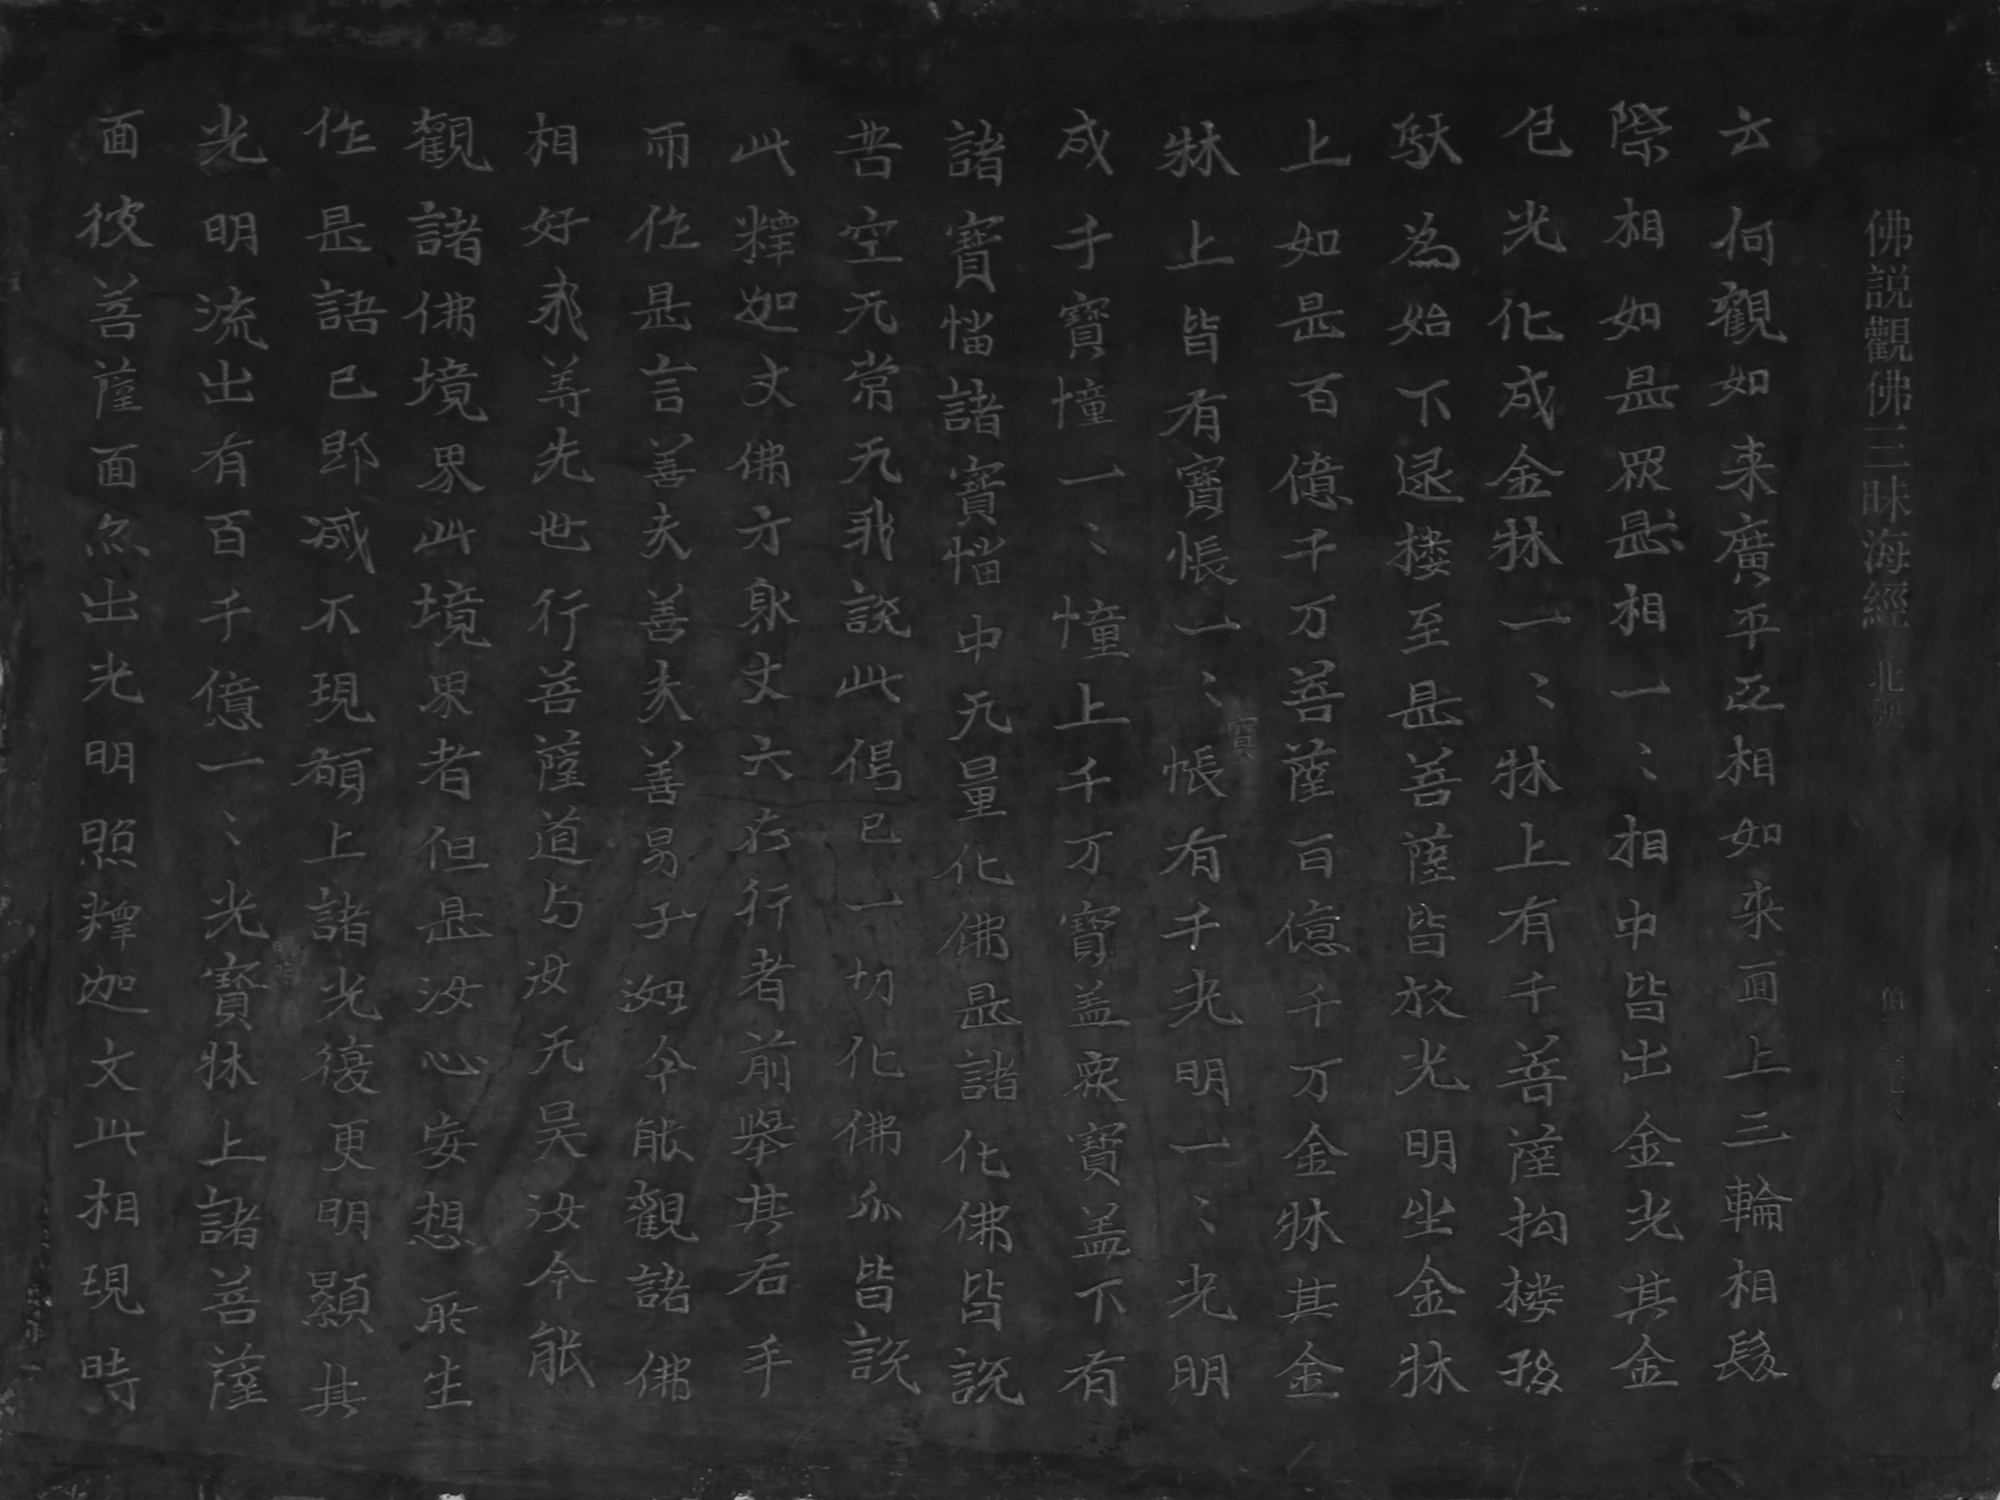 佛説觀佛三昧海經 北魏
云何觀如来廣平正相如来面上三輪相髮
際相如是眾是相一〻相中皆出金光其金
色光化成金牀一〻牀上有千菩薩拘樓孫
馱為始下逮樓至是菩薩皆放光明坐金牀
上如是百億千万菩薩百億千万金牀其金
牀上皆有寶帳一〻帳有千光明一〻光明
成千寶幢一〻幢上千万寶盖眾寶盖下有
諸寶幡諸寶幡中无量化佛是諸化佛皆説
苦空无常无我説此偈已一切化佛亦皆説
此釋迦文佛方身丈六在行者前舉其右手
而作是言善夫善夫善男子汝今能觀諸佛
相好我等先世行菩薩道与汝无異汝今能
觀諸佛境界此境界者但是汝心妄想所生
作是語已即滅不現額上諸光復更明顯其
光明流出有百千億一〻光寶牀上諸菩薩
面彼菩薩面亦出光明照釋迦文此相現時